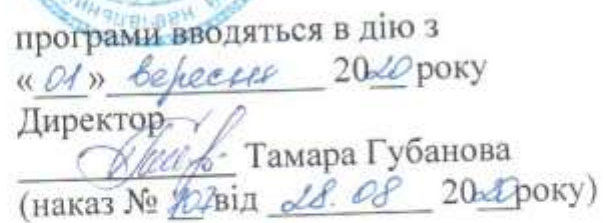 програми вводяться в дію з
«01» вересня 2020 року
Директор
Тамара Губанова
(наказ № від 28.08 2020 року)